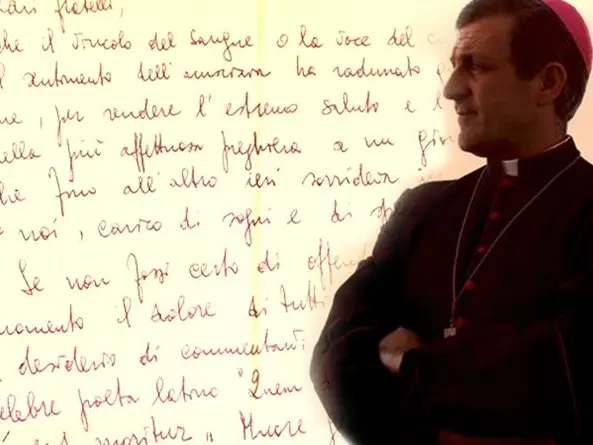 Cari fratelli,
che il vincolo del sangue o la voce del
il sentimento dell'amicizia ha radunato
, per rendere l'estremo saluto e
della più affettuosa preghiera a un
che fino all'altro ieri sorrideva
noi, carico di sogni e di
Se non fossi certo di
momento il dolore di tutti
desiderio di
celebre poeta latino "Quem
moritur". Muore